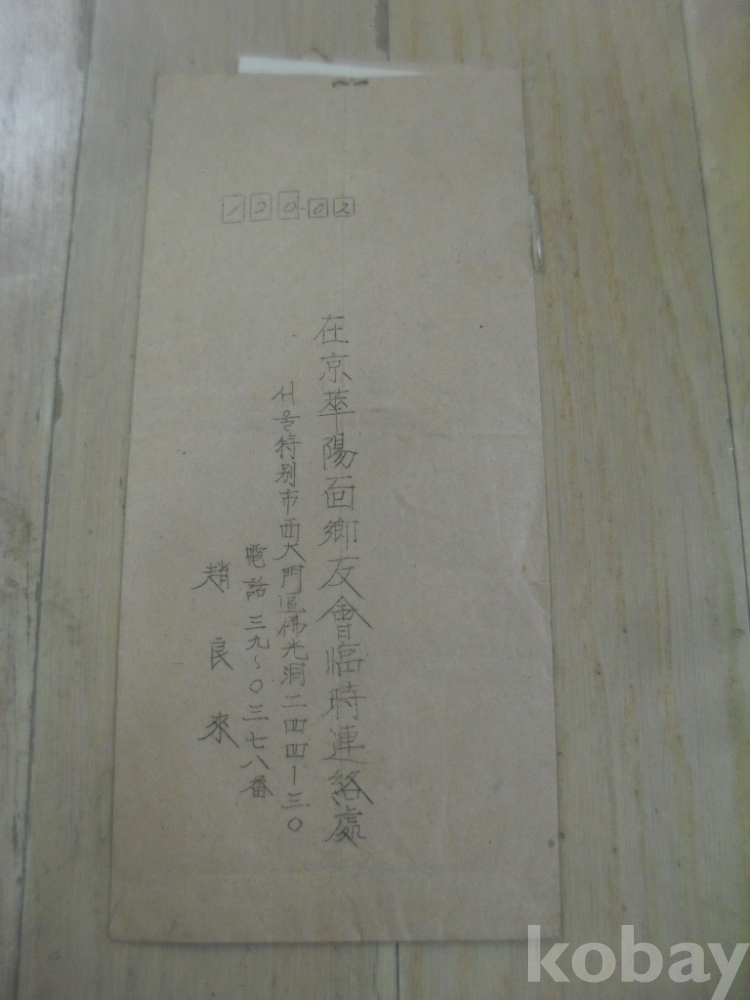 120-02
在京華陽面鄕友會臨時連絡處
서울特别市西大門區佛光洞二四四-三〇
電話 三九~〇三七八番
趙良來
kobay